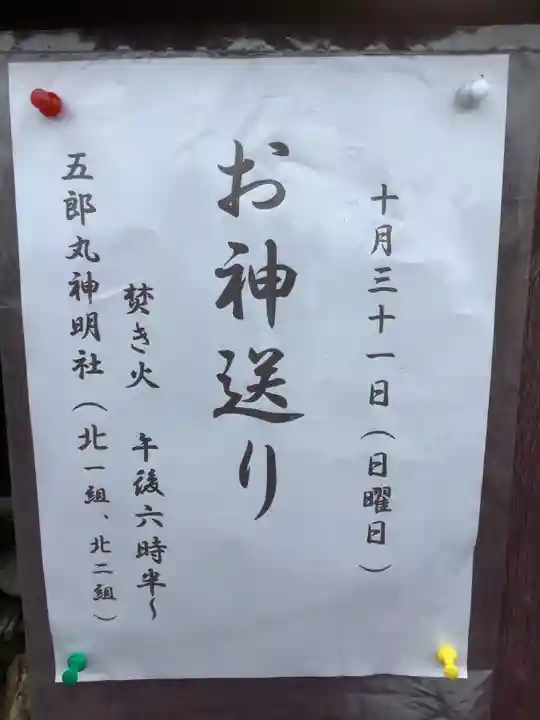 十月三十一日(日曜日)
お神送り
焚き火　午後六時半~
五郎丸神明社(北一組、北二組)